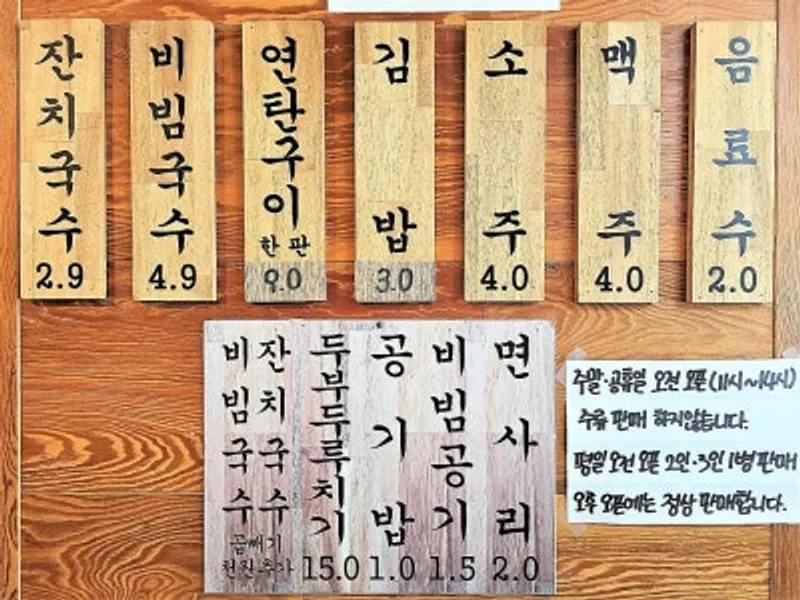 잔치국수 2.9
비빔국수 4.9
연탄구이 한판 9.0
김밥 3.0
소주 4.0
맥주 4.0
음료수 2.0
비빔국수 잔치국수 곱빼기 천원 추가
두부두루치기 15.0
공기밥 1.0
비빔공기 1.5
면사리 2.0
주말·공휴일 오전 오픈(11시~14시)
주류 판매 하지않습니다.
평일 오전 오픈 2인·3인 1병 판매
오후 오픈에는 정상 판매합니다.